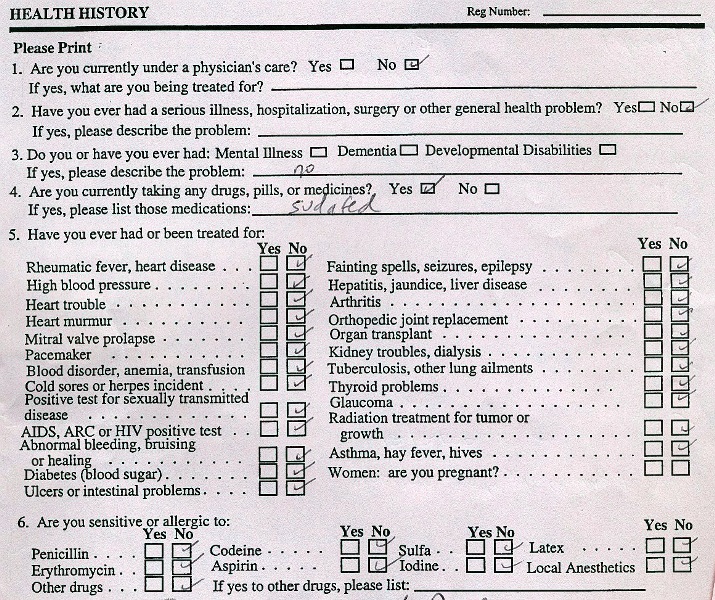 HEALTH HISTORY Reg Number:
Please Print :
1. Are you currently under a physician's care? Yes ☐ No ☑
If yes, what are you being treated for?
2. Have you ever had a serious illness, hospitalization, surgery or other general health problem? Yes ☐ No ☑
If yes, please describe the problem:
3. Do you or have you ever had: Mental Illness ☐ Dementia ☐ Developmental Disabilities ☐
If yes, please describe the problem: no
4. Are you currently taking any drugs, pills, or medicines? Yes ☑ No ☐
If yes, please list those medications: sudafed
5. Have you ever had or been treated for:
Yes No
Rheumatic fever, heart disease . . . ☐ ☑
High blood pressure . . . ☐ ☑
Heart trouble . . . ☐ ☑
Heart murmur . . . ☐ ☑
Mitral valve prolapse . . . ☐ ☑
Pacemaker . . . ☐ ☑
Blood disorder, anemia, transfusion ☐ ☑
Cold sores or herpes incident . . . ☐ ☑
Positive test for sexually transmitted
disease . . . ☐ ☑
AIDS, ARC or HIV positive test . . . ☐ ☑
Abnormal bleeding, bruising
or healing . . . ☐ ☑
Diabetes (blood sugar) . . . ☐ ☑
Ulcers or intestinal problems . . . ☐ ☑
Yes No
Fainting spells, seizures, epilepsy . . . ☐ ☑
Hepatitis, jaundice, liver disease . . . ☐ ☑
Arthritis . . . ☐ ☑
Orthopedic joint replacement . . . ☐ ☑
Organ transplant . . . ☐ ☑
Kidney troubles, dialysis . . . ☐ ☑
Tuberculosis, other lung ailments . . . ☐ ☑
Thyroid problems . . . ☐ ☑
Glaucoma . . . ☐ ☑
Radiation treatment for tumor or
growth . . . ☐ ☑
Asthma, hay fever, hives . . . ☐ ☑
Women: are you pregnant? . . . ☐ ☐
6. Are you sensitive or allergic to:
Yes No Yes No Yes No Yes No
Penicillin . . . ☐ ☑ Codeine . . . ☐ ☑ Sulfa . . . ☐ ☑ Latex . . . ☐ ☑
Erythromycin . . . ☐ ☑ Aspirin . . . ☐ ☑ Iodine . . . ☐ ☑ Local Anesthetics ☐ ☑
Other drugs . . . ☐ ☑ If yes to other drugs, please list: